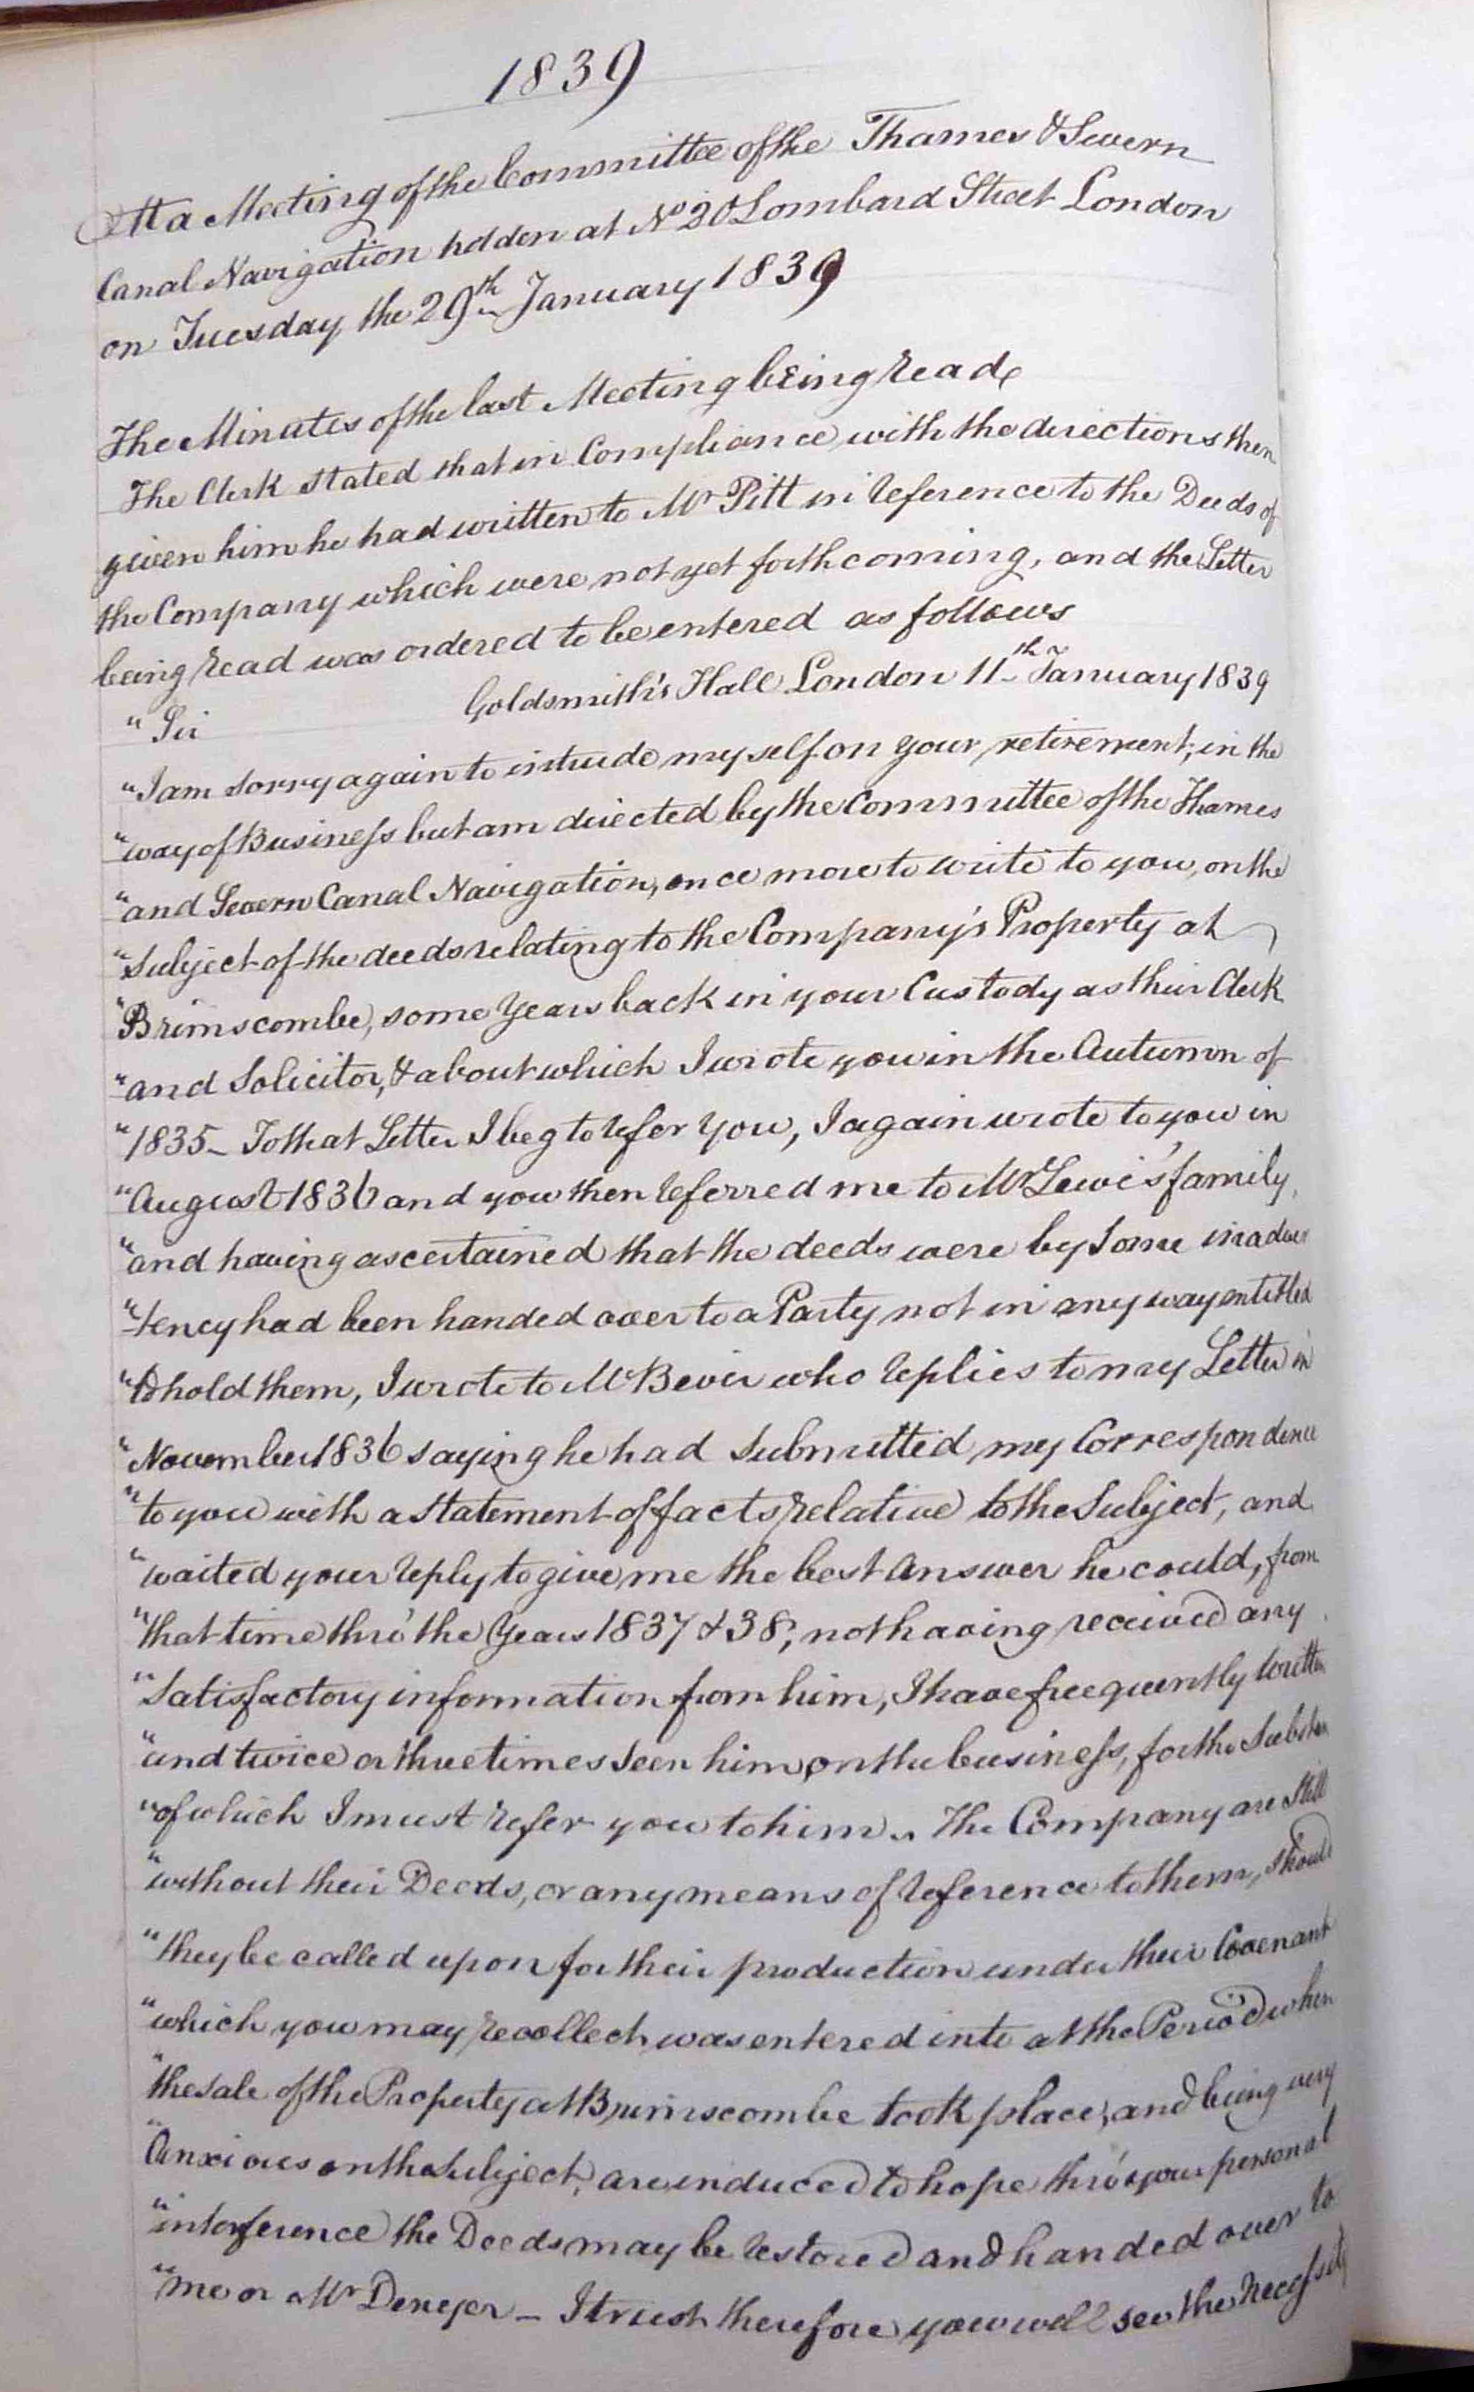 1839
At a Meeting of the Committee of the Thames & Severn
Canal Navigation holden at No 20 Lombard Street London
on Tuesday the 29th January 1839
The Minutes of the last Meeting being read
The Clerk stated that in Compliance with the directions then
given him he had written to Mr Pitt in reference to the Deeds of
the Company which were not yet forthcoming, and the Letter
being read was ordered to be entered as follows
Goldsmith's Hall London 11th January 1839
"Sir
"I am sorry again to intrude myself on your retirement, in the
"way of Business but am directed by the Committee of the Thames
"and Severn Canal Navigation, once more to write to you, on the
"subject of the deeds relating to the Company's Property at
"Brimscombe, some Years back in your Custody as their Clerk
"and Solicitor, & about which I wrote you in the Autumn of
"1835 - To that Letter I beg to refer You, I again wrote to you in
"August 1836 and you then referred me to Mr Lewis' family,
"and having ascertained that the deeds were by Some inadver
"tency had been handed over to a Party not in any way entitled
"to hold them, I wrote to Mr Bevir who replies to my Letter in
"November 1836 saying he had submitted my Correspondence
"to you with a statement of facts relative to the Subject, and
"waited your reply to give me the best Answer he could, from
"that time thro' the Years 1837 & 38, not having received any
"satisfactory information from him, I have freequently written
"and twice or three times seen him on the business, for the
"of which I must refer you to him. The Company are Still
"without their Deeds, or any means of reference to them, should
"they be called upon for their production under their Covenant
"which you may recollect was entered into at the Period when
"the sale of the Property at Brimscombe took place, and being very
"Anxious on the Subject, are induced to hope thro' your personal
"interference the Deeds may be restored and handed over to
"me or Mr Denyer - I trust therefore you will see the necessity